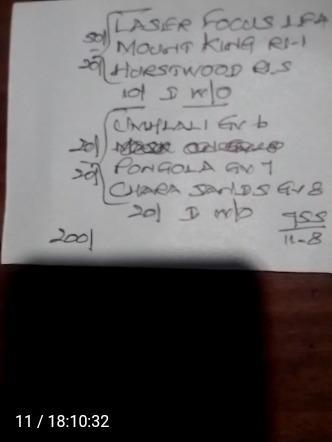 50/ LASER FOCUS
MOUNT KING R1-1
20/ HORSEWOOD
10/ D w/o
UMHLALI GV 6
20/
20/ PONGOLA GV 7
CHARA SANDS GV 8
20/ D w/o
200/
11-8
11 / 18:10:32